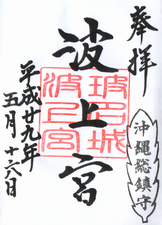 奉拝
沖縄総鎮守
波上宮
波上宮
平成廿九年
五月十六日